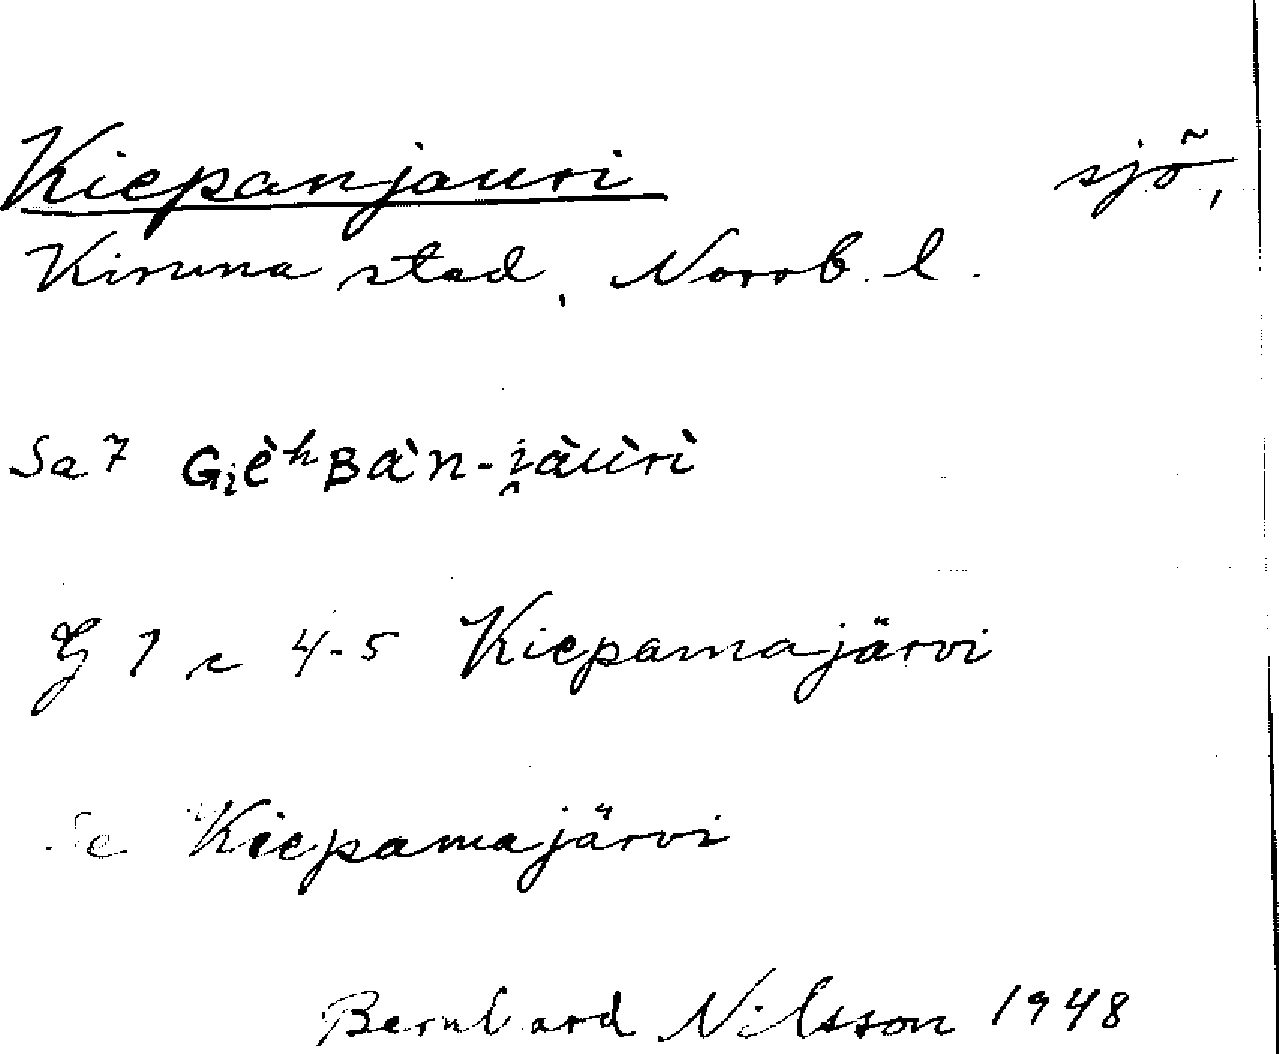 Kiepanjauri sjö,
Kiruna stad, Norrb. l.
Sa 7 Gᵢèʰʙàn-i̯àùrì
G 1 c 4-5 Kiepamajärvi
Se Kiepamajärvi
Bernhard Nilsson 1948